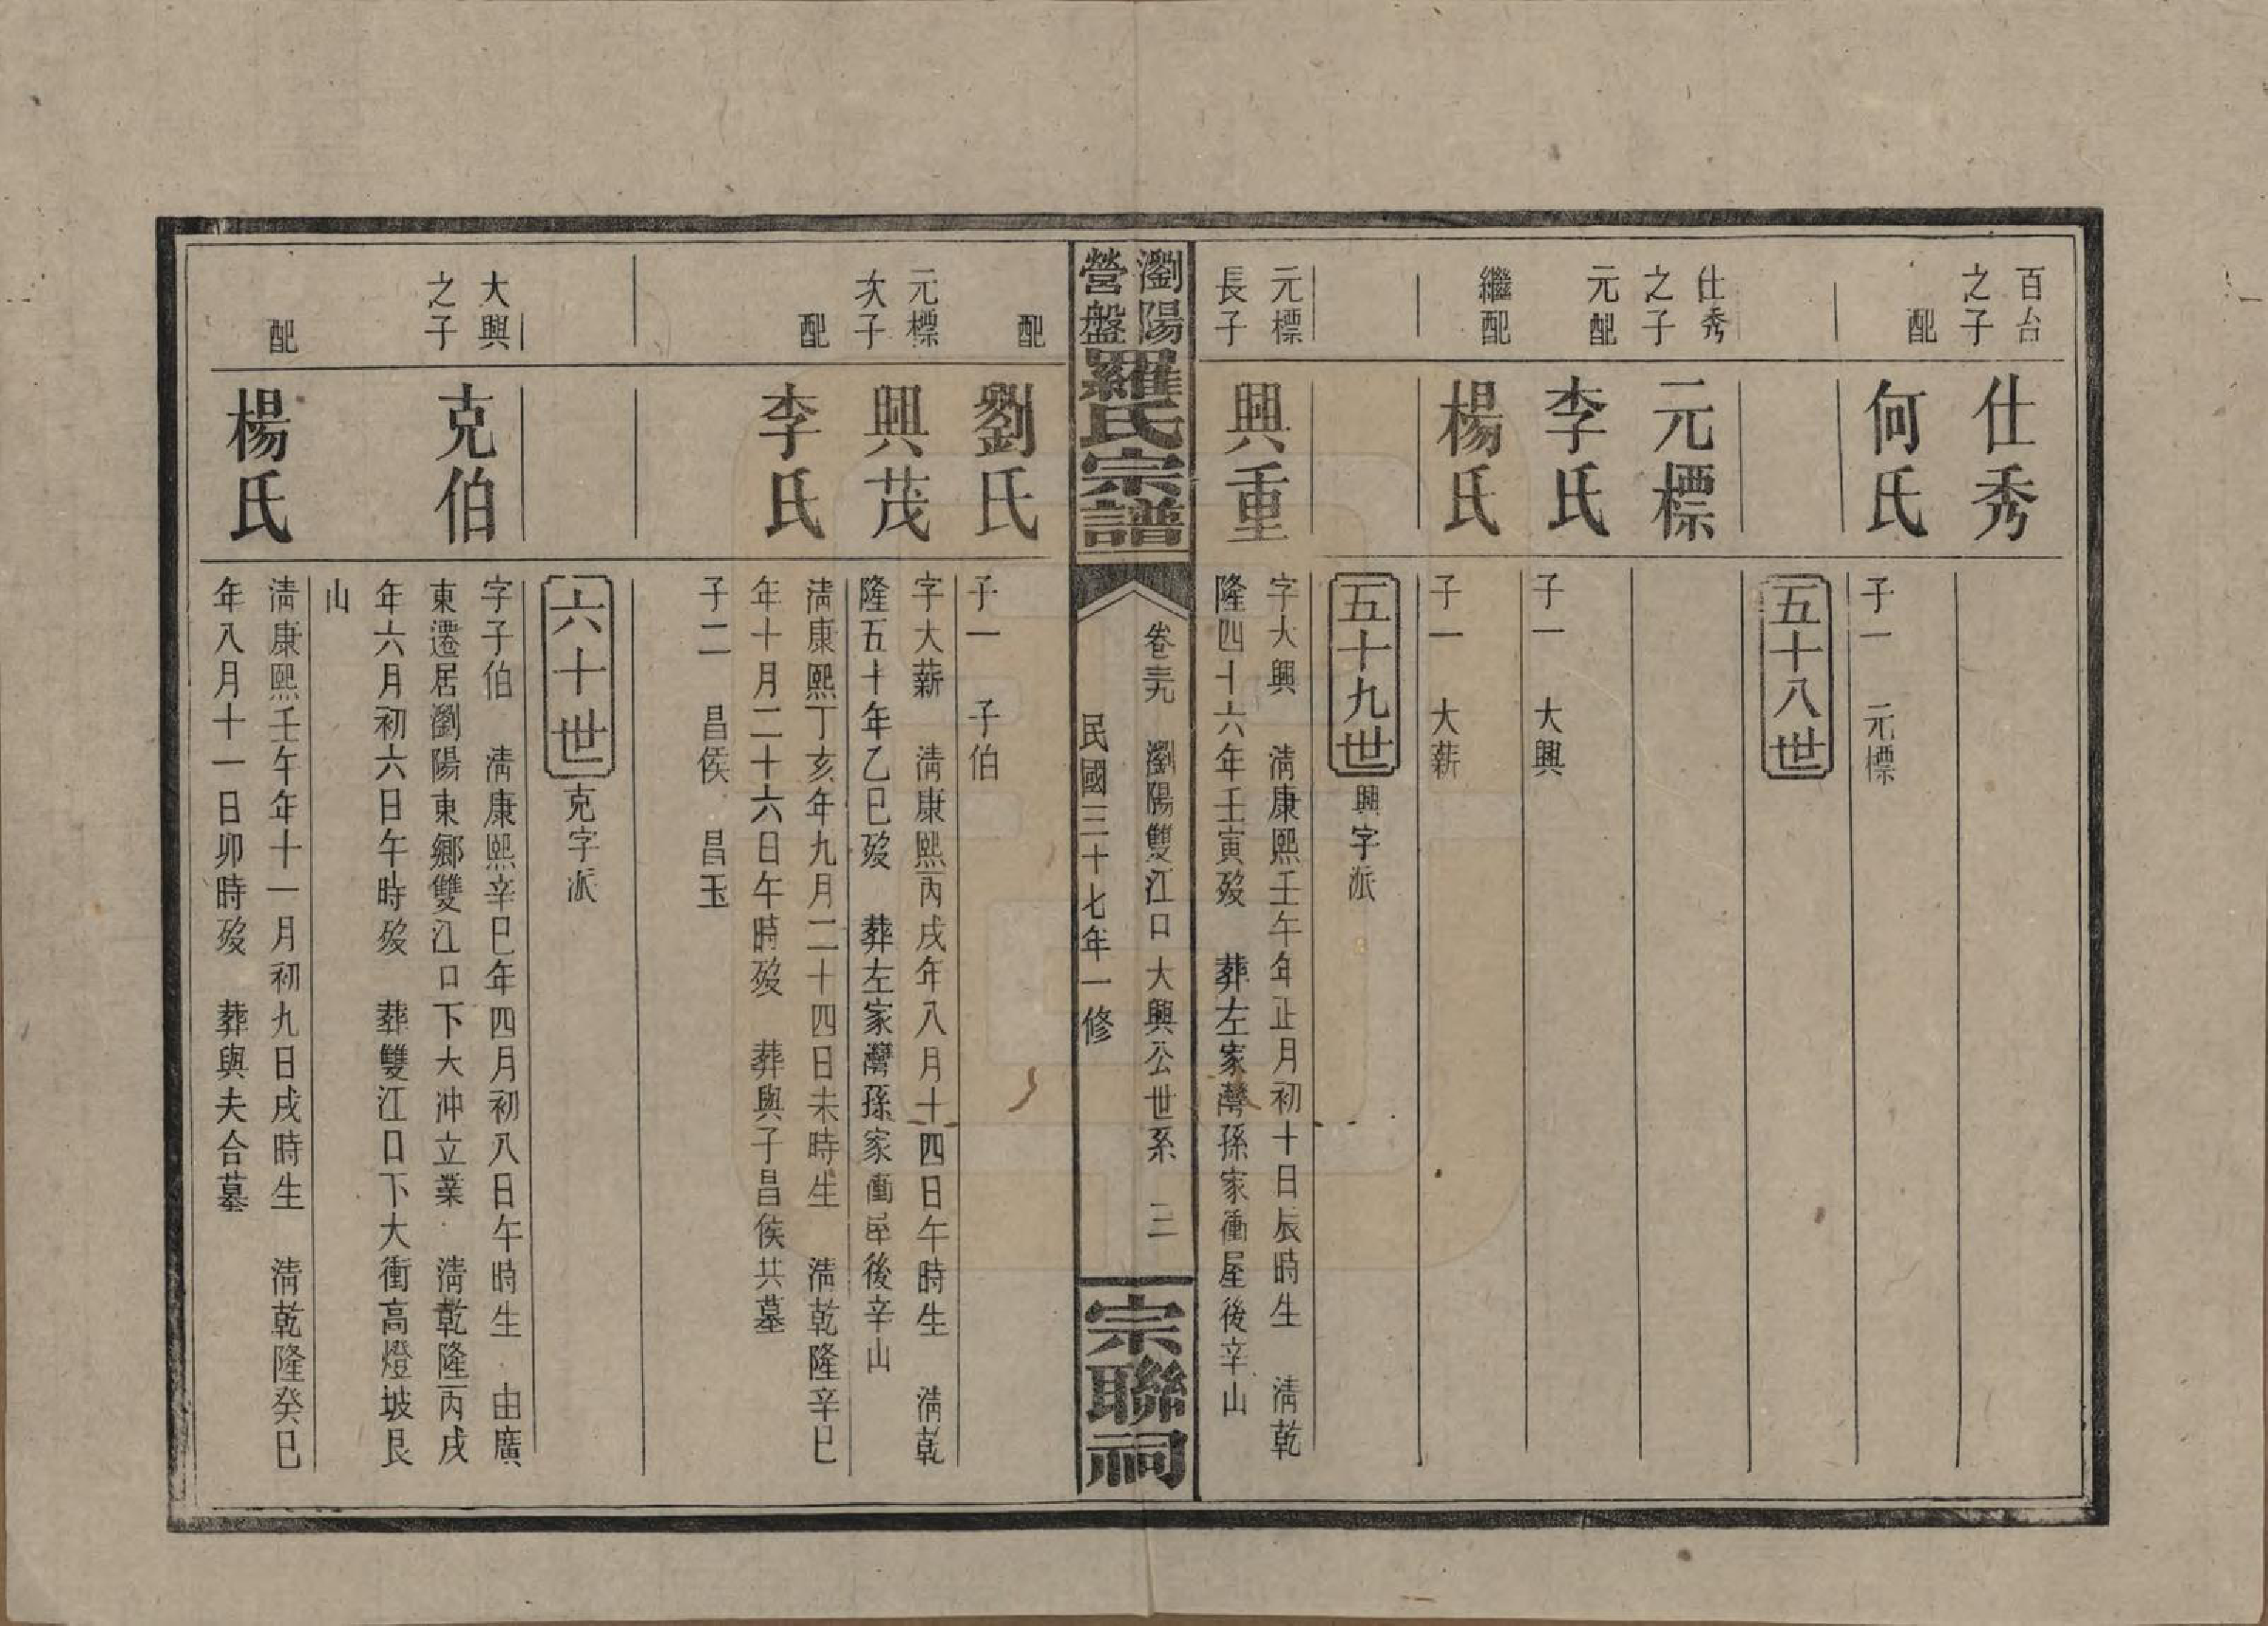 百台之子
仕秀
配
何氏
子一 元標
五十八世
仕秀之子
元標
元配
李氏
子一 大興
繼配
楊氏
子一 大薪
五十九世 興字派
元標長子
興重
字大興 清康熙壬午年正月初十日辰時生 清乾
隆四十六年壬寅歿 葬左家灣孫家衝屋後辛山
瀏陽營盤
羅氏宗譜
卷 瀏陽雙江口大興公世系 三
民國三十七年一修
宗聯祠
配
劉氏
子一 子伯
元標次子
興茂
字大薪 清康熙丙戌年八月十四日午時生 清乾
隆五十年乙巳歿 葬左家灣孫家衝屋後辛山
配
李氏
清康熙丁亥年九月二十四日未時生 清乾隆辛巳
年十月二十六日午時歿 葬與子昌侯共墓
子二 昌侯 昌玉
六十世 克字派
大興之子
克伯
字子伯 清康熙辛巳年四月初八日午時生 由廣
東遷居瀏陽東鄉雙江口下大冲立業 清乾隆丙戌
年六月初六日午時歿 葬雙江口下大衝高燈坡艮
山
配
楊氏
清康熙壬午年十一月初九日戌時生 清乾隆癸巳
年八月十一日卯時歿 葬與夫合墓